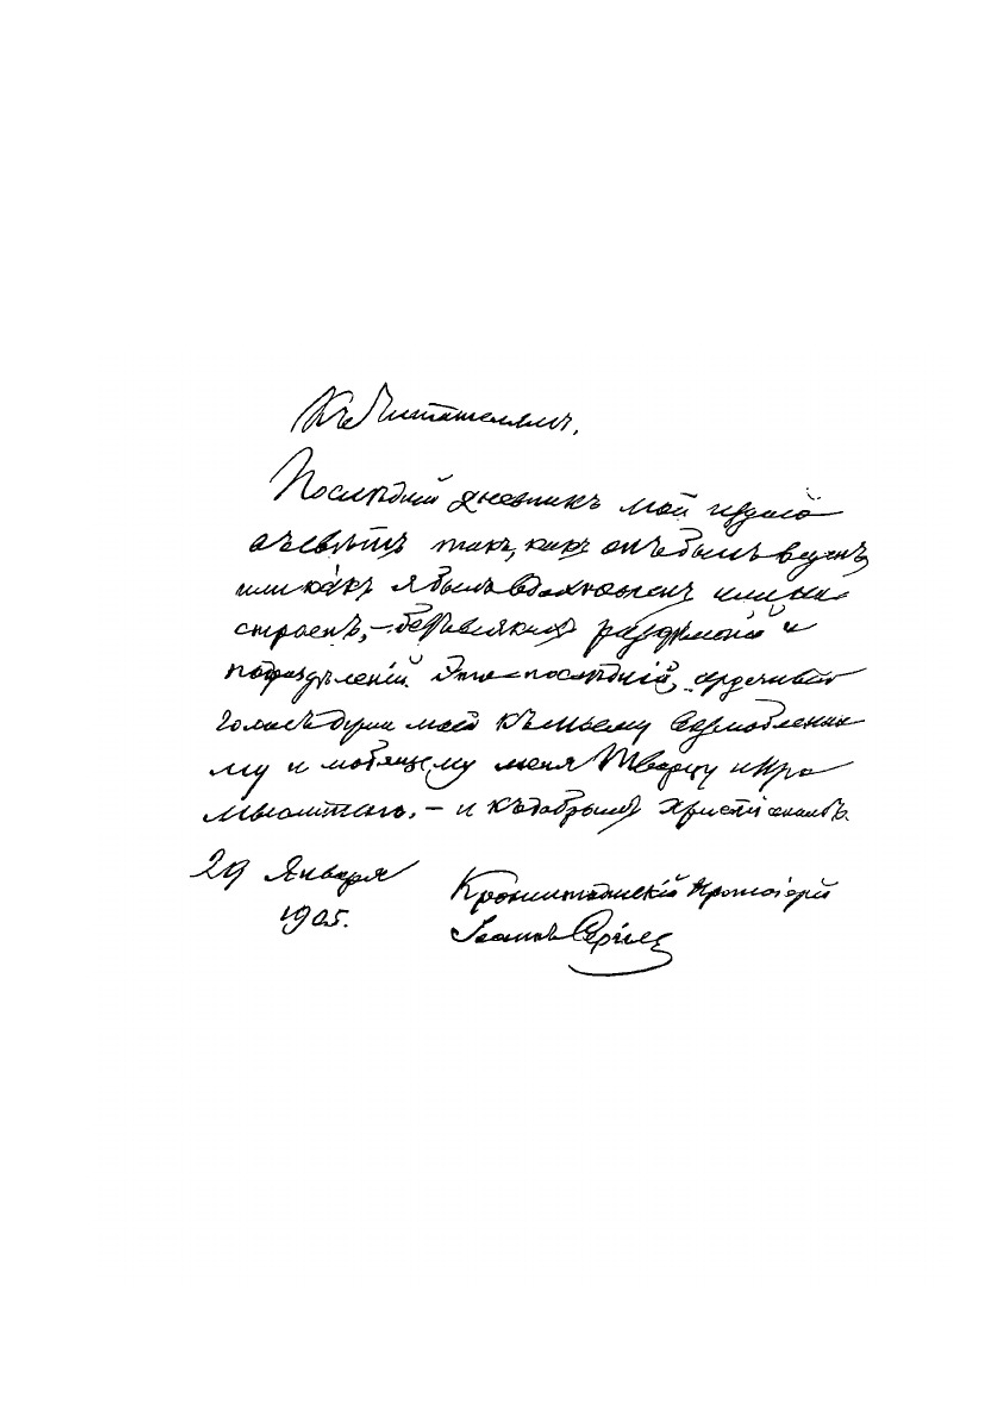 Къ Читателямъ.
Послѣдній дневникъ мой издаю
въ свѣтъ такъ, какъ онъ былъ веденъ,
или какъ я былъ вдохновенъ или на-
строенъ, – безъ всякихъ раздѣленій и
подраздѣленій. Это – послѣдній, сердечный
голосъ души моей къ моему возлюбленно-
му и любящему меня Творцу и Про-
мыслителю, – и къ добрымъ христіанамъ.
29 Января
1905.
Кронштадтскій Протоіерей
Іоаннъ Сергіевъ